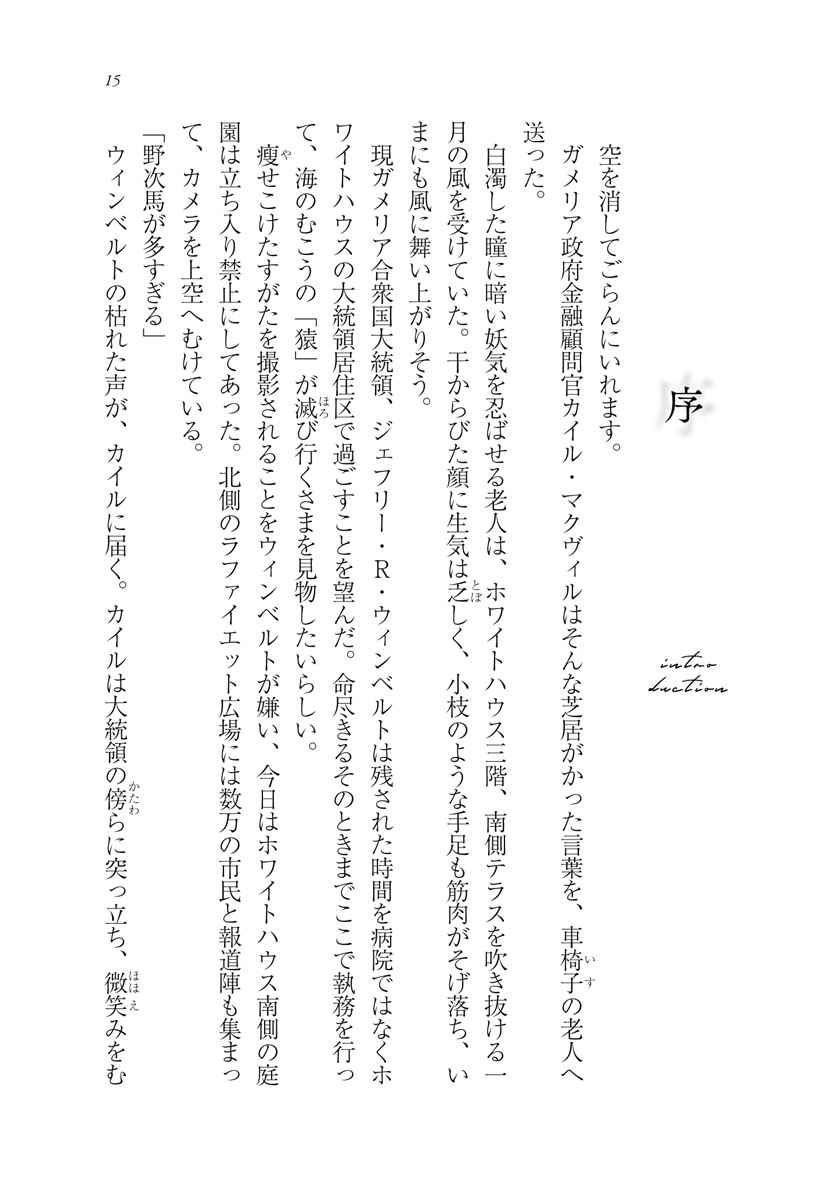 15
序
intro
duction
空を消してごらんにいれます。
ガメリア政府金融顧問官カイル・マクヴィルはそんな芝居がかった言葉を、車椅子の老人へ
送った。
白濁した瞳に暗い妖気を忍ばせる老人は、ホワイトハウス三階、南側テラスを吹き抜ける一
月の風を受けていた。干からびた顔に生気は乏しく、小枝のような手足も筋肉がそげ落ち、い
まにも風に舞い上がりそう。
現ガメリア合衆国大統領、ジェフリー・R・ウィンベルトは残された時間を病院ではなくホ
ワイトハウスの大統領居住区で過ごすことを望んだ。命尽きるそのときまでここで執務を行っ
て、海のむこうの「猿」が滅び行くさまを見物したいらしい。
痩せこけたすがたを撮影されることをウィンベルトが嫌い、今日はホワイトハウス南側の庭
園は立ち入り禁止にしてあった。北側のラファイエット広場には数万の市民と報道陣も集まっ
て、カメラを上空へむけている。
「野次馬が多すぎる」
ウィンベルトの枯れた声が、カイルに届く。カイルは大統領の傍らに突っ立ち、微笑みをむ